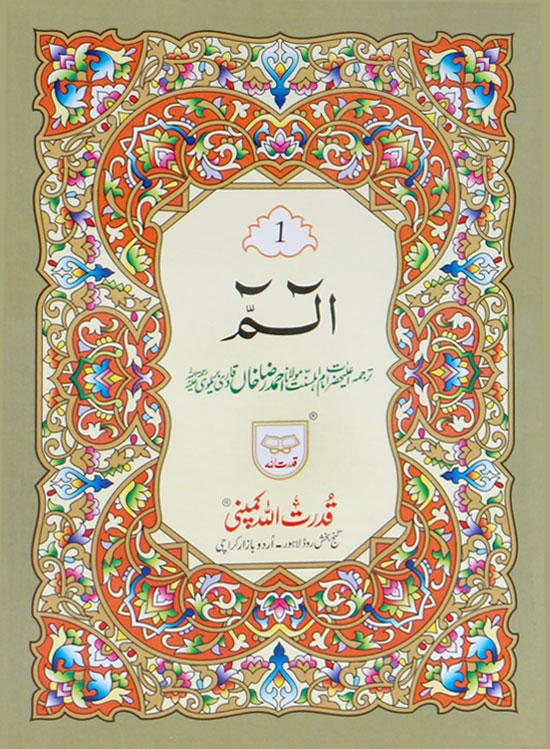 1
الٓمّٓ
ترجمہ اعلیٰحضرت امام اہلسنت مولانا احمد رضا خاں قادری بریلوی رحمۃ اللہ علیہ
®
قدرت اللہ
قُدرت اللہ کمپنی ®
گنج بخش روڈ لاہور - اُردو بازار کراچی